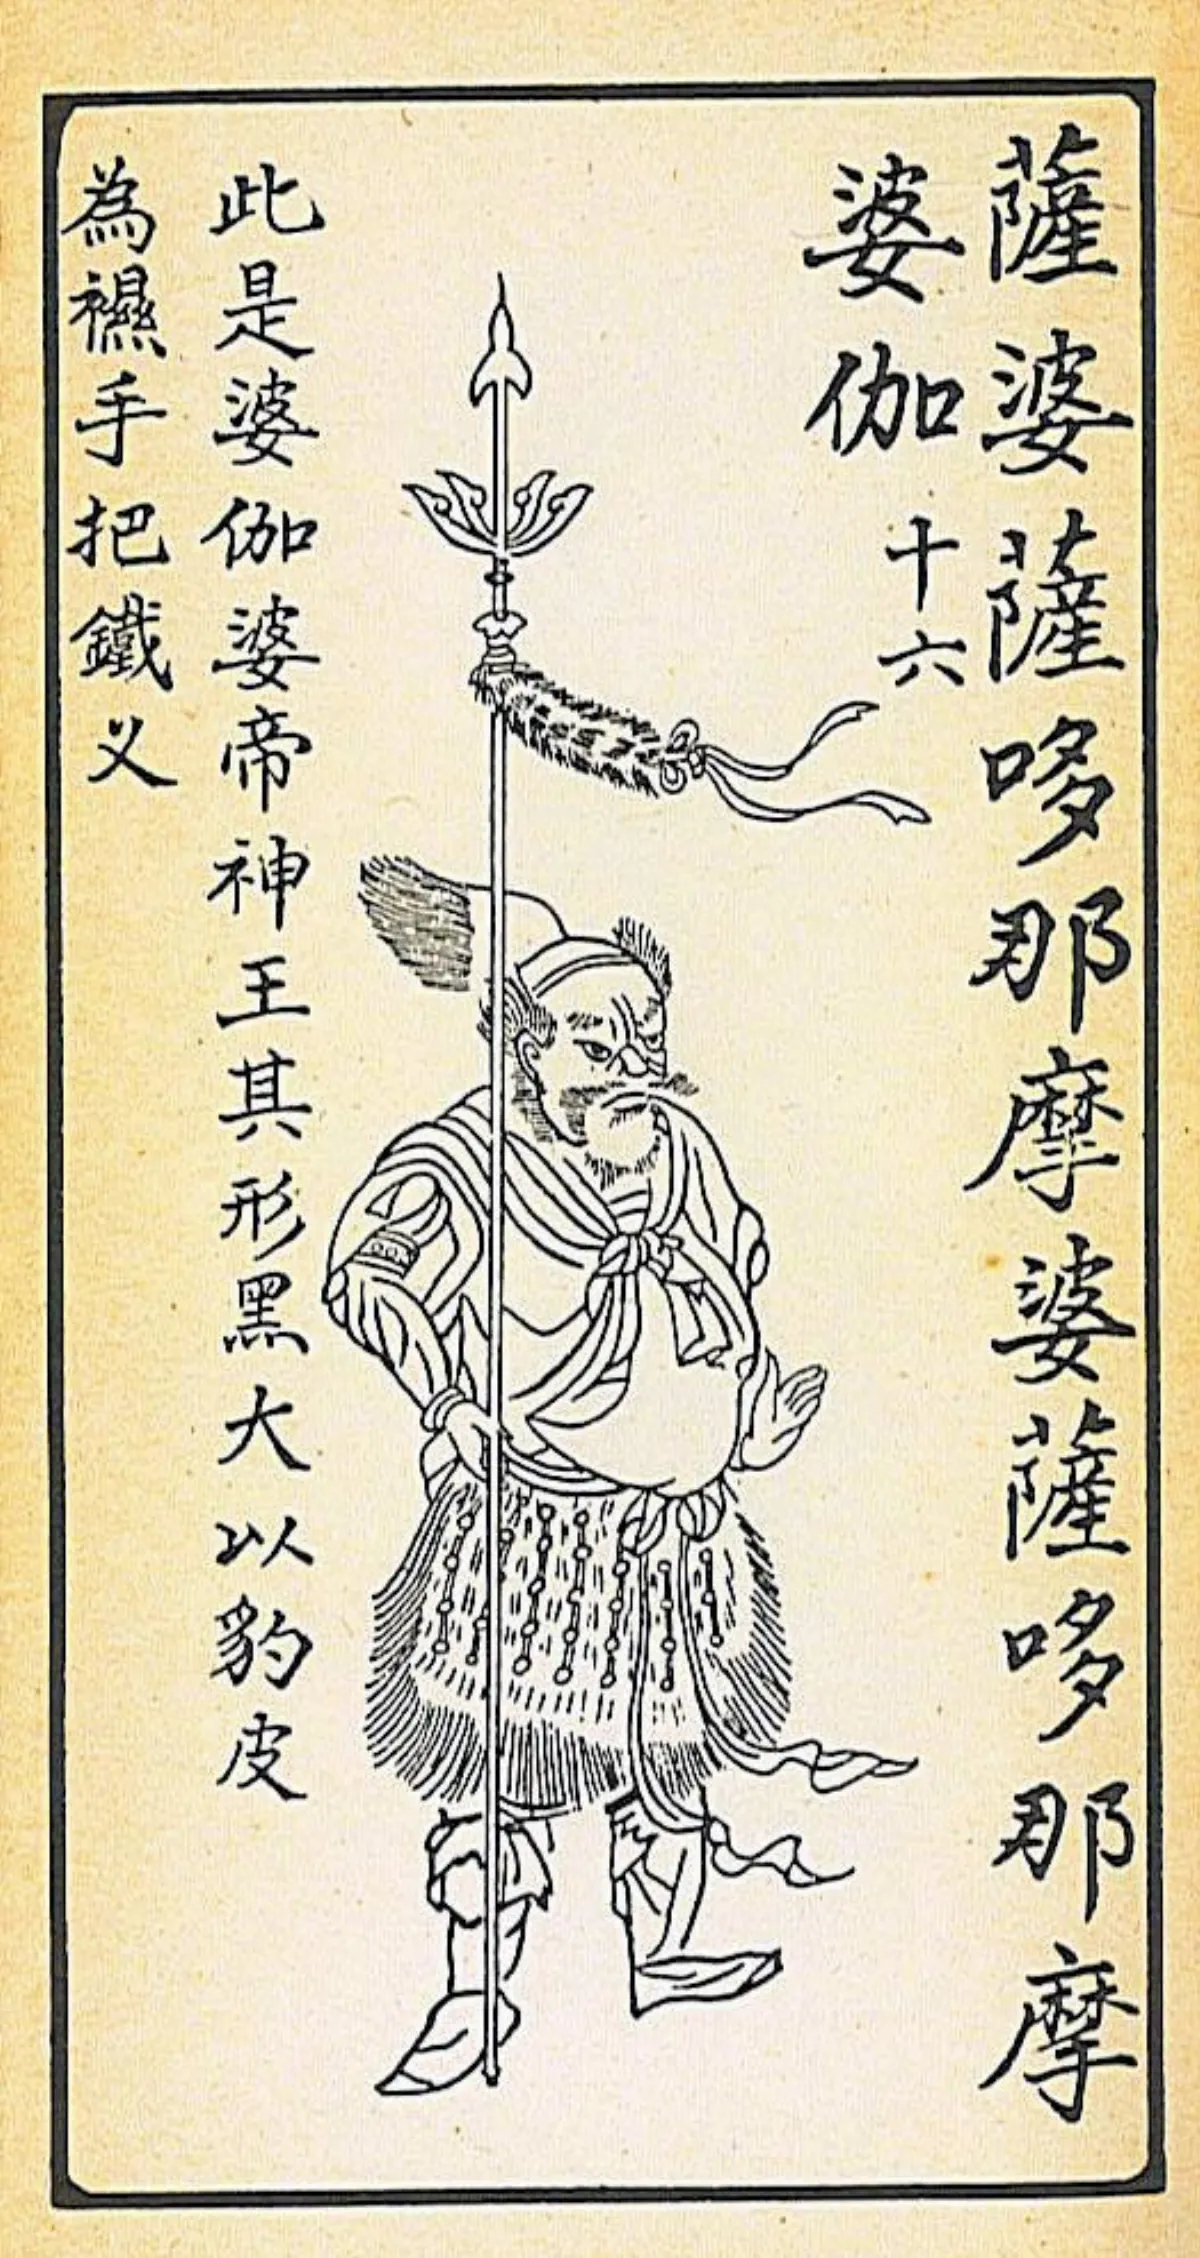 薩婆薩哆那摩婆薩哆那摩
婆伽十六
此是婆伽婆帝神王其形黑大以豹皮
為手把鐵义